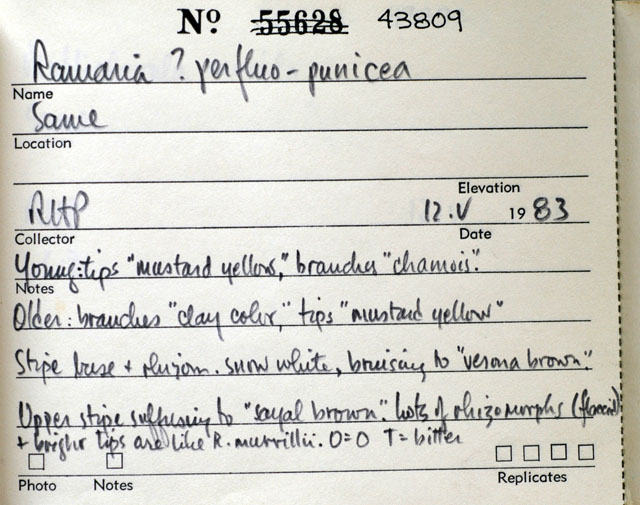 Nº 55628 43809
Ramaria ? perfluo-punicea
Name
Same
Location
Elevation
RHP 12.V 1983
Collector Date
Young: tips "mustard yellow," branches "chamois".
Notes
Older: branches "clay color," tips "mustard yellow"
Stipe base + rhizom. snow white, bruising to "verona brown".
Upper stipe suffusing to "sayal brown". Lots of rhizomorphs
+ bright tips are like R. murrillii. O=O T=bitter
Photo Notes Replicates